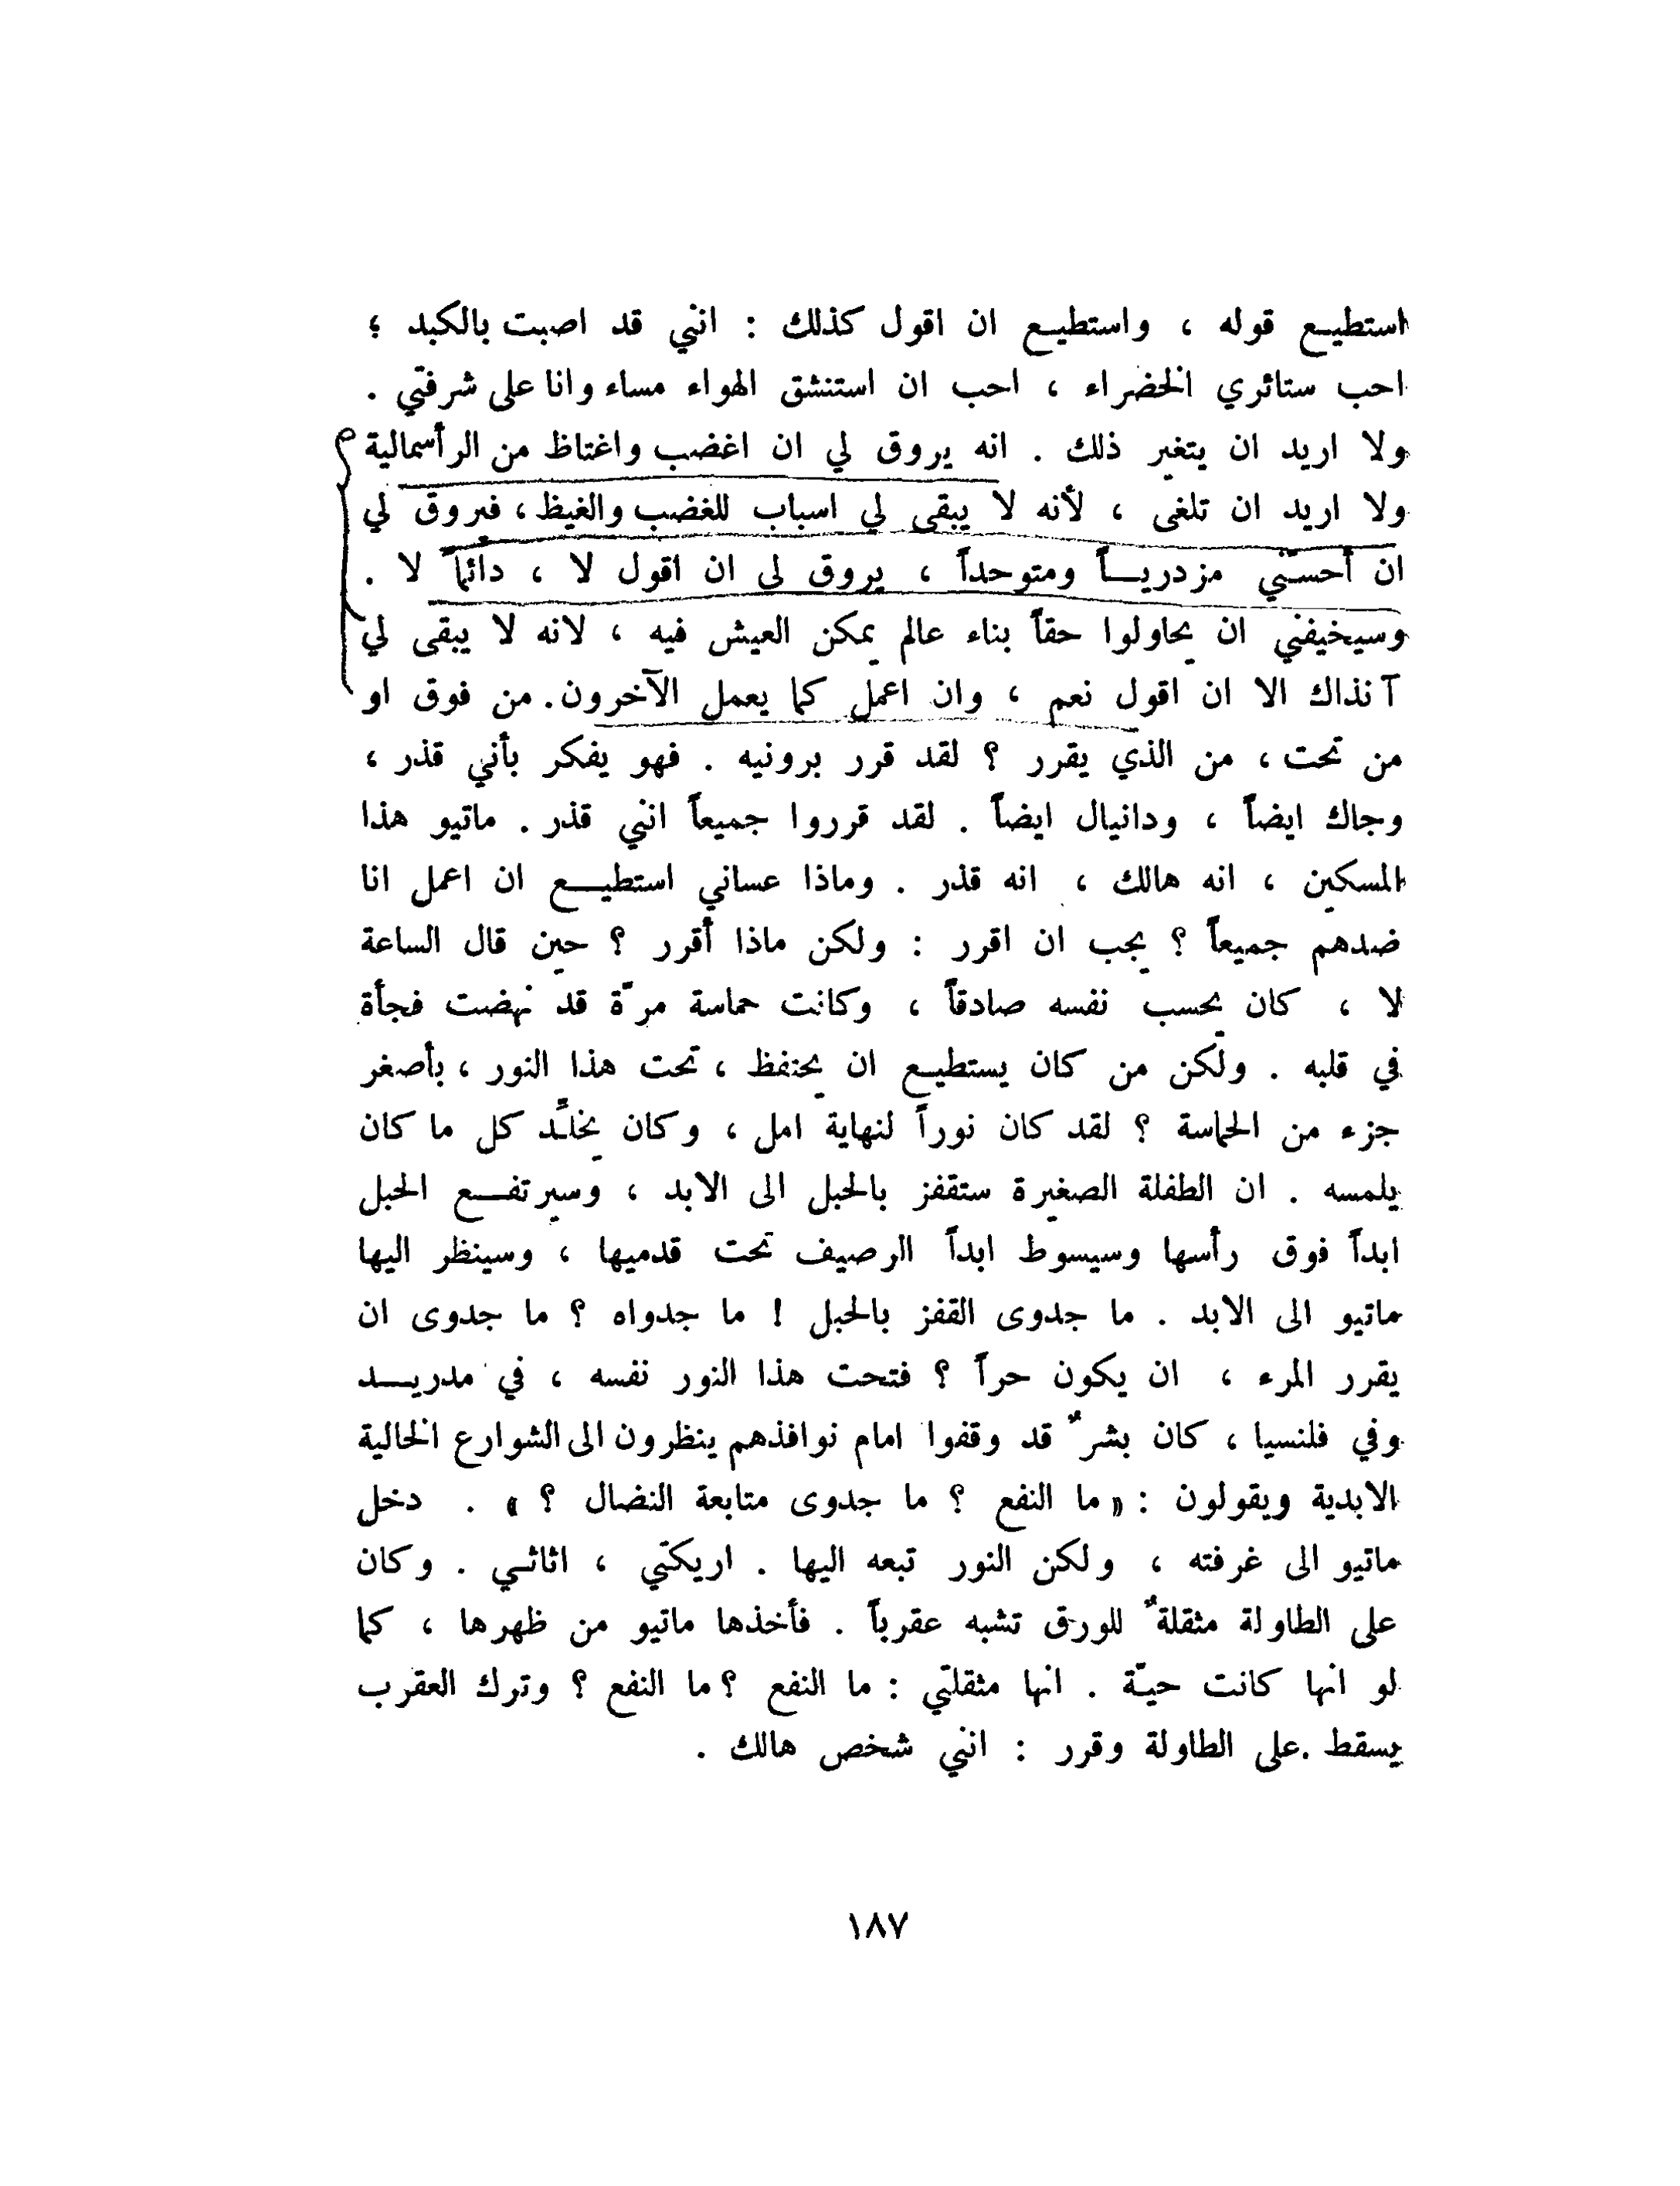 استطيع قوله ، واستطيع ان اقول كذلك : انني قد اصبت بالكبد ؛
احب ستائري الخضراء ، احب ان استنشق الهواء مساء وانا على شرفتي .
ولا اريد ان يتغير ذلك . انه يروق لي ان اغضب واغتاظ من الرأسمالية
ولا اريد ان تلغى ، لأنه لا يبقى لي اسباب للغضب والغيظ ، فيروق لي
ان أحسّني مزدرياً ومتوحداً ، يروق لي ان اقول لا ، دائماً لا .
وسيخيفني ان يحاولوا حقاً بناء عالم يمكن العيش فيه ، لانه لا يبقى لي
آنذاك الا ان اقول نعم ، وان اعمل كما يعمل الآخرون . من فوق او
من تحت ، من الذي يقرر ؟ لقد قرر برونيه . فهو يفكر بأني قذر ،
وجاك ايضاً ، ودانيال ايضاً . لقد قرروا جميعاً انني قذر . ماتيو هذا
المسكين ، انه هالك ، انه قذر . وماذا عساني استطيع ان اعمل انا
ضدهم جميعاً ؟ يجب ان اقرر : ولكن ماذا أقرر ؟ حين قال الساعة
لا ، كان يحسب نفسه صادقاً ، وكانت حماسة مرّة قد نهضت فجأة
في قلبه . ولكن من كان يستطيع ان يحتفظ ، تحت هذا النور ، بأصغر
جزء من الحماسة ؟ لقد كان نوراً لنهاية امل ، وكان يخلّد كل ما كان
يلمسه . ان الطفلة الصغيرة ستقفز بالحبل الى الابد ، وسيرتفع الحبل
ابداً فوق رأسها وسيسوط ابداً الرصيف تحت قدميها ، وسينظر اليها
ماتيو الى الابد . ما جدوى القفز بالحبل ! ما جدواه ؟ ما جدوى ان
يقرر المرء ، ان يكون حراً ؟ فتحت هذا النور نفسه ، في مدريد
وفي فلنسيا ، كان بشرٌ قد وقفوا امام نوافذهم ينظرون الى الشوارع الخالية
الابدية ويقولون : « ما النفع ؟ ما جدوى متابعة النضال ؟ » . دخل
ماتيو الى غرفته ، ولكن النور تبعه اليها . اريكتي ، اثاثي . وكان
على الطاولة مثقلةٌ للورق تشبه عقرباً . فأخذها ماتيو من ظهرها ، كما
لو انها كانت حيّة . انها مثقلتي : ما النفع ؟ ما النفع ؟ وترك العقرب
يسقط على الطاولة وقرر : انني شخص هالك .
١٨٧